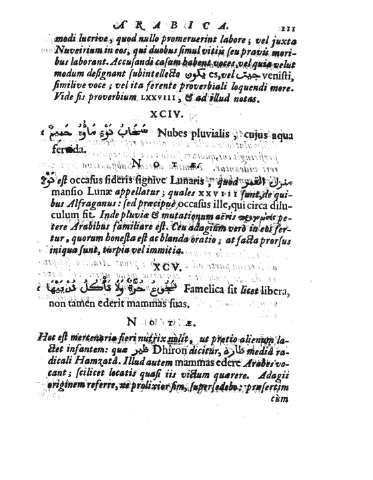 ARABICA. 111
modi lucrive, quod nullo promeruerint labore; vel juxta
Nuverium in eos, qui duobus simul vitiis seu pravis mori-
bus laborant. Accusandi casum habent voces, vel quia velut
modum designant subintellecto يكون cs, vel جيت venisti,
similive voce; vel ita ferente proverbiali loquendi more.
Vide sis proverbium LXXVIII, & ad illud notas.
XCIV.
سحاب نوء ماؤه حميم Nubes pluvialis, cujus aqua
fervida.
NOTÆ.
نوء est occasus sideris signive Lunaris, quod منزل القمر
mansio Lunæ appellatur; quales XXVIII sunt, de qui-
bus Alfraganus: sed præcipuè occasus ille, qui circa dilu-
culum fit. Inde pluviā & mutationum aëris pe-
tere Arabibus familiare est. Ceu adagium verò in eos fer-
tur, quorum honesta est ac blanda oratio; at facta prorsus
iniqua sunt, turpia vel immitia.
XCV.
تجوع حرة ولا تاكل ثدييها Famelica sit licet libera,
non tamen ederit mammas suas.
NOTÆ.
Hoc est mercenaria fieri nutrix nolit, ut pretio alienum la-
ctet infantem: quæ ظير Dhiron dicitur, mediâ ra-
dicali Hamzatâ. Illud autem mammas edere Arabes vo-
cant; scilicet locatis quasi iis victum quærere. Adagii
originem referre, ne prolixior sim, supersedebo: præsertim
cùm